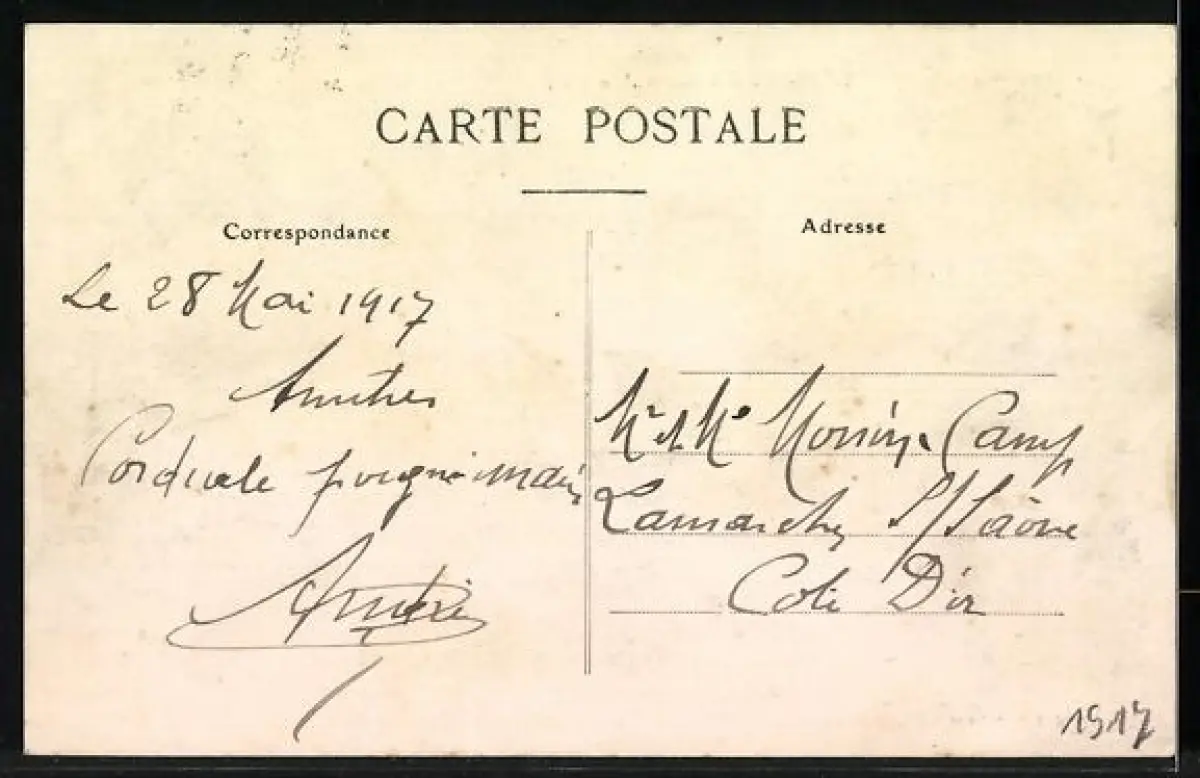 CARTE POSTALE
Correspondance
Le 28 Mai 1917
Amitiés
Cordiale poignée mains
André
Adresse
Mr et Me Camp
Lamarche S/Saône
Cote D'or
1917